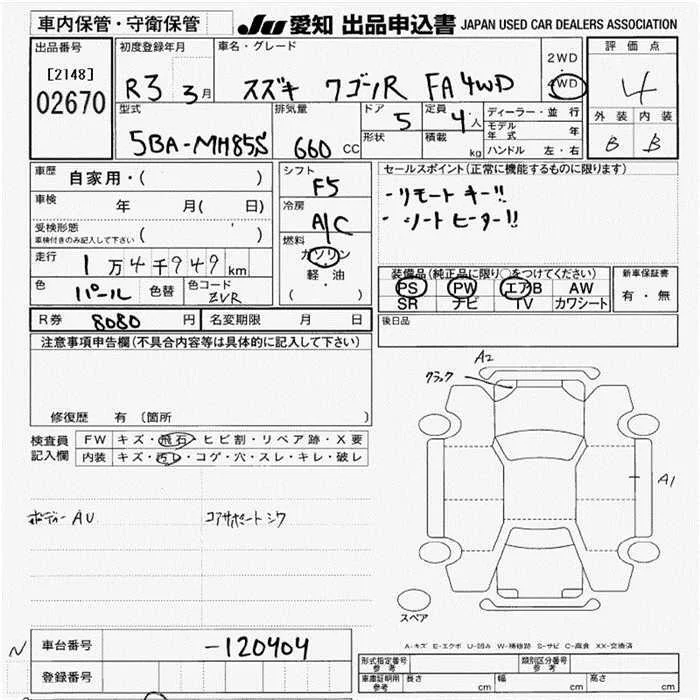 車内保管・守衛保管
JU 愛知 出品申込書 JAPAN USED CAR DEALERS ASSOCIATION
出品番号
[2148]
02670
初度登録年月
R3 3月
車名・グレード
スズキ ワゴンR FA 4WD
2WD
4WD
評価点
4
外装 内装
B B
型式
5BA-MH85S
排気量
660 CC
ドア
5
形状
定員
4人
積載
kg
ディーラー・並行
モデル年式 年
ハンドル 左・右
車歴
自家用・( )
車検
年 月( 日)
受検形態
車検付きのみ記入して下さい ( )
走行
1万4千949km
色
パール
色替
色コード
ZVR
シフト
F5
冷房
A/C
燃料
ガソリン
・
軽・油
( )
セールスポイント(正常に機能するものに限ります)
・リモートキー!!
・シートヒーター!!
装備品(純正品に限り○をつけてください)
PS PW エアB AW
SR ナビ TV カワシート
新車保証書
有・無
後日品
R券 8080 円
名変期限 月 日
注意事項申告欄(不具合内容等は具体的に記入して下さい)
修復歴 有 〔箇所 〕
検査員
記入欄
FW キズ・飛石・ヒビ割・リペア跡・X要
内装 キズ・汚レ・コゲ・穴・スレ・キレ・破レ
ボディーAU
コアサポートシワ
A2
クラック
A1
スペア
A-キズ E-エクボ U-凹み W-補修跡 S-サビ C-腐食 XX-交換済
N
車台番号
-120404
登録番号
型式指定番号
参考
類別区分番号
参考
車庫証明用
参考
長さ cm
幅 cm
高さ cm